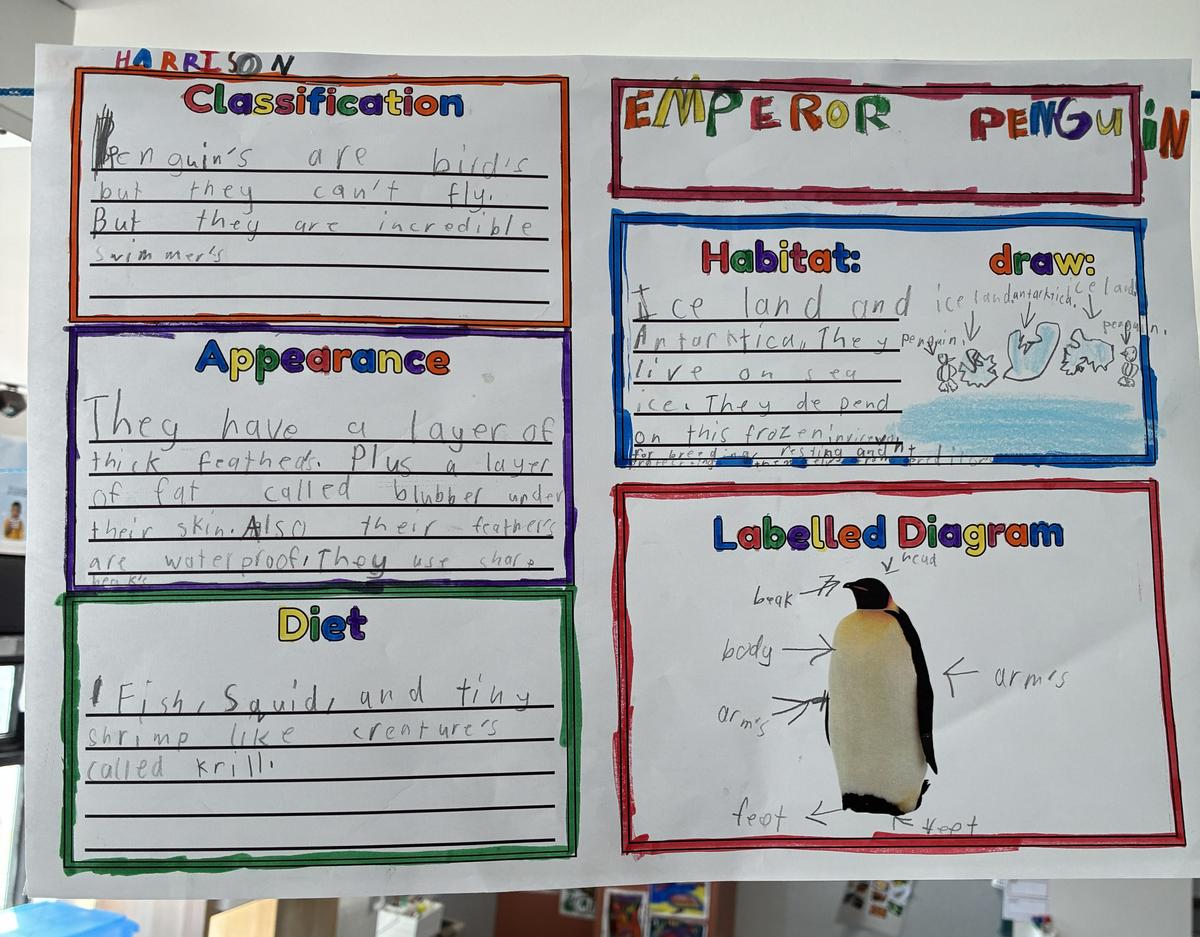 HARRISON
Classification
Penguin's are bird's
but they can't fly.
But they are incredible
swimmer's
Appearance
They have a layer of
thick feathers. Plus a layer
of fat called blubber under
their skin. Also their feathers
are waterproof. They use sharp
beak's
Diet
Fish, Squid, and tiny
shrimp like creature's
called krill.
EMPEROR PENGUIN
Habitat:
Ice land and
Antarktica. They
live on sea
ice. They depend
on this frozen
for breeding, resting and
draw:
ice land
antarktica.
ice land
penguin.
penguin.
Labelled Diagram
head
beak
body
arm's
arm's
feet
feet